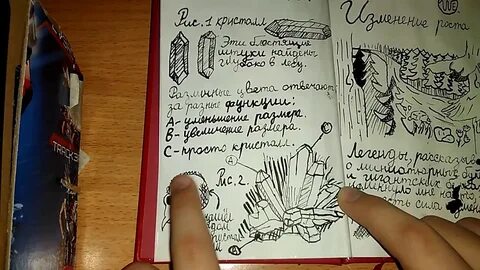 Рис. 1 кристалл
Эти блестящие
штуки найдены
глубоко в лесу.
Различные цвета отвечают
за разные функции:
A- уменьшение размера.
B- увеличение размера.
C- просто кристалл.
A
Рис. 2.
Изменение роста
Легенды, рассказ
о миниатюрных
и гигантских
мне
сила
TRACK